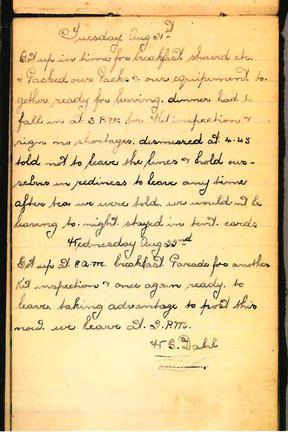 Tuesday Aug 21st
Got up in time for breakfast shaved etc.
& Packed our Packs & our equipement to
gether ready for leaving. dinner had to
fall in at 3 P.M. for Kit inspection &
sign no shortages. dismissed at 4-45
told not to leave the lines & hold our-
selves in rediness to leave any time
after tea we were told. we would not be
leaving to-night stayed in tent. cards
Wednesday Aug 22nd
Got up at 8 a.m. breakfast Parade for another
Kit inspection & once again ready. to
leave. taking advantage to post this
now. we leave at. 2. P.M.